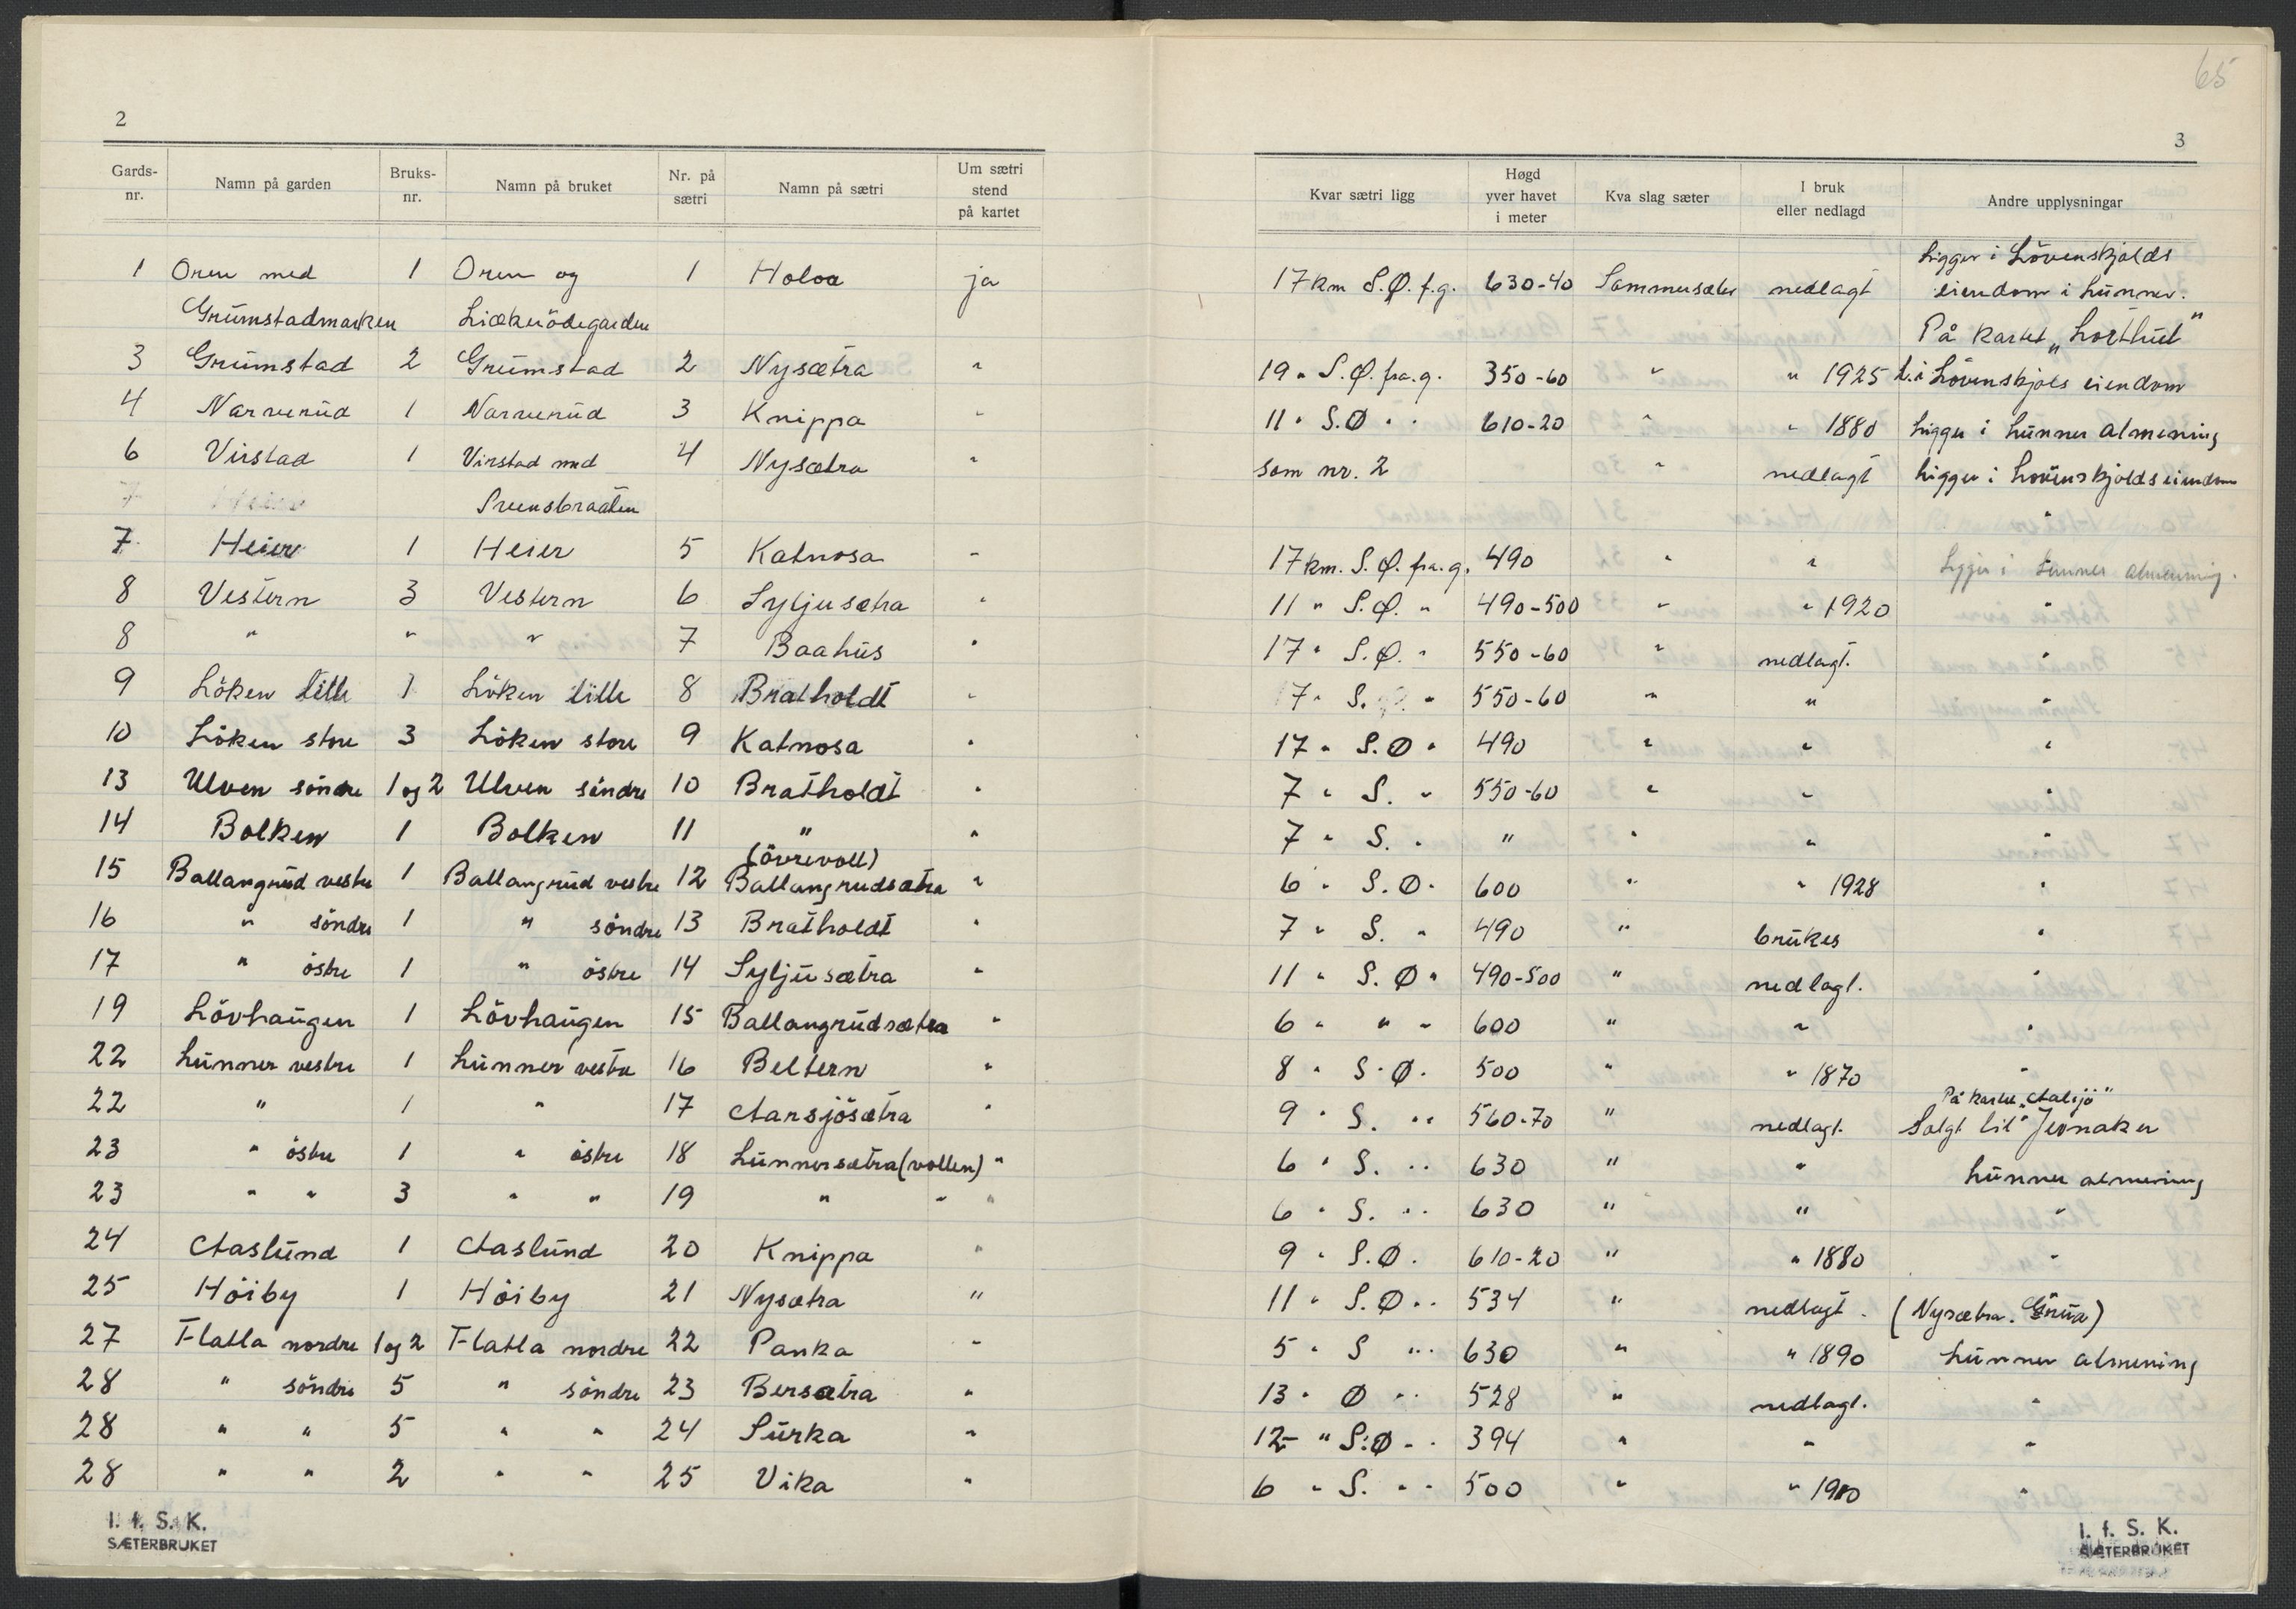 65
2
3
Gards-nr. Namn på garden Bruks-nr. Namn på bruket Nr. på sætri Namn på sætri Um sætri stend på kartet Kvar sætri ligg Høgd yver havet i meter Kva slag sæter I bruk eller nedlagd Andre upplysningar
1 Oren med 1 Oren og 1 Holoa ja 17 km S.Ø. f.g. 630-40 Sommersæter nedlagt Ligger i Lövenskjolds
Grümstadmarken eiendom i Lünner.
På kartet „Lorthul"
3 Grümstad 2 Grümstad 2 Nysætra " 19 " S.Ø. fra. g. 350-60 " " 1925 L. i Lövenskjols eiendom
4 Narverüd 1 Narverüd 3 Knippa " 11 " S.Ø " " 610-20 " " 1880 Ligger i Lünner Almening
6 Virstad 1 Virstad med 4 Nysætra " som nr. 2 " nedlagt Ligger i Lövenskjolds eiendom
7 Svensbraaten "
7 Heier 1 Heier 5 Katnosa " 17 km. S.Ø. fra. g. 490 " " Ligger i Lunner almenning.
8 Vestern 3 Vestern 6 Syljusætra " 11 " S.Ø. " 490-500 " " 1920 "
8 " " " 7 Baahüs " 17 " S.Ø. " 550-60 " nedlagt. "
9 Löken lille 1 Löken lille 8 Bratholdt " 17 " S. " 550-60 " " "
10 Löken store 3 Löken store 9 Katnosa " 17 " S.Ø " 490 " " "
13 Ulven söndre 1 og 2 Ulven söndre 10 Bratholdt " 7 " S. " 550-60 " " "
14 Bolken 1 Bolken 11 " " 7 " S. " " " " "
(övrevoll)
15 Ballangrüd vestre 1 Ballangrüd vestre 12 Ballangrudsætra " 6 " S.Ø. 600 " " 1928 "
16 " söndre 1 " söndre 13 Bratholdt " 7 " S. " 490 " brükes "
17 " östre 1 " östre 14 Syljüsætra " 11 " S.Ø " 490-500 " nedlagt. "
19 Lövhaügen 1 Lövhaügen 15 Ballangrüdsætra " 6 " " " 600 " " "
22 Lünner vestre 1 Lünner vestre 16 Beltern " 8 " S.Ø. 500 " " 1870 "
På kartet „Aalsjö"
22 " 1 " 17 Aarsjösætra " 9 " S. " " 560-70 " nedlagt. Solgt til Jevnaker
23 " östre 1 " östre 18 Lünnersætra (vollen) " 6 " S. " " 630 " " Lünner almening
23 " " 3 " " 19 " " " 6 " S. " " 630 " " "
24 Aaslünd 1 Aaslünd 20 Knippa " 9 " S.Ø. 610-20 " " 1880 "
25 Höiby 1 Höiby 21 Nysætra " 11 " S.Ø " " 534 " nedlagt. (Nysætra. Grüa)
27 Flatla nordre 1 og 2 Flatla nordre 22 Panka " 5 " S " " 630 " " 1890 Lünner almening
28 " söndre 5 " söndre 23 Bersætra " 13 " Ø " " 528 " nedlagt. "
28 " " 5 " " 24 Sürka " 12 " S.Ø " " 394 " " "
28 " " 2 " " 25 Vika " 6 " S. " " 500 " " "
I. f. S. K.
SÆTERBRUKET
I. f. S. K.
SÆTERBRUKET